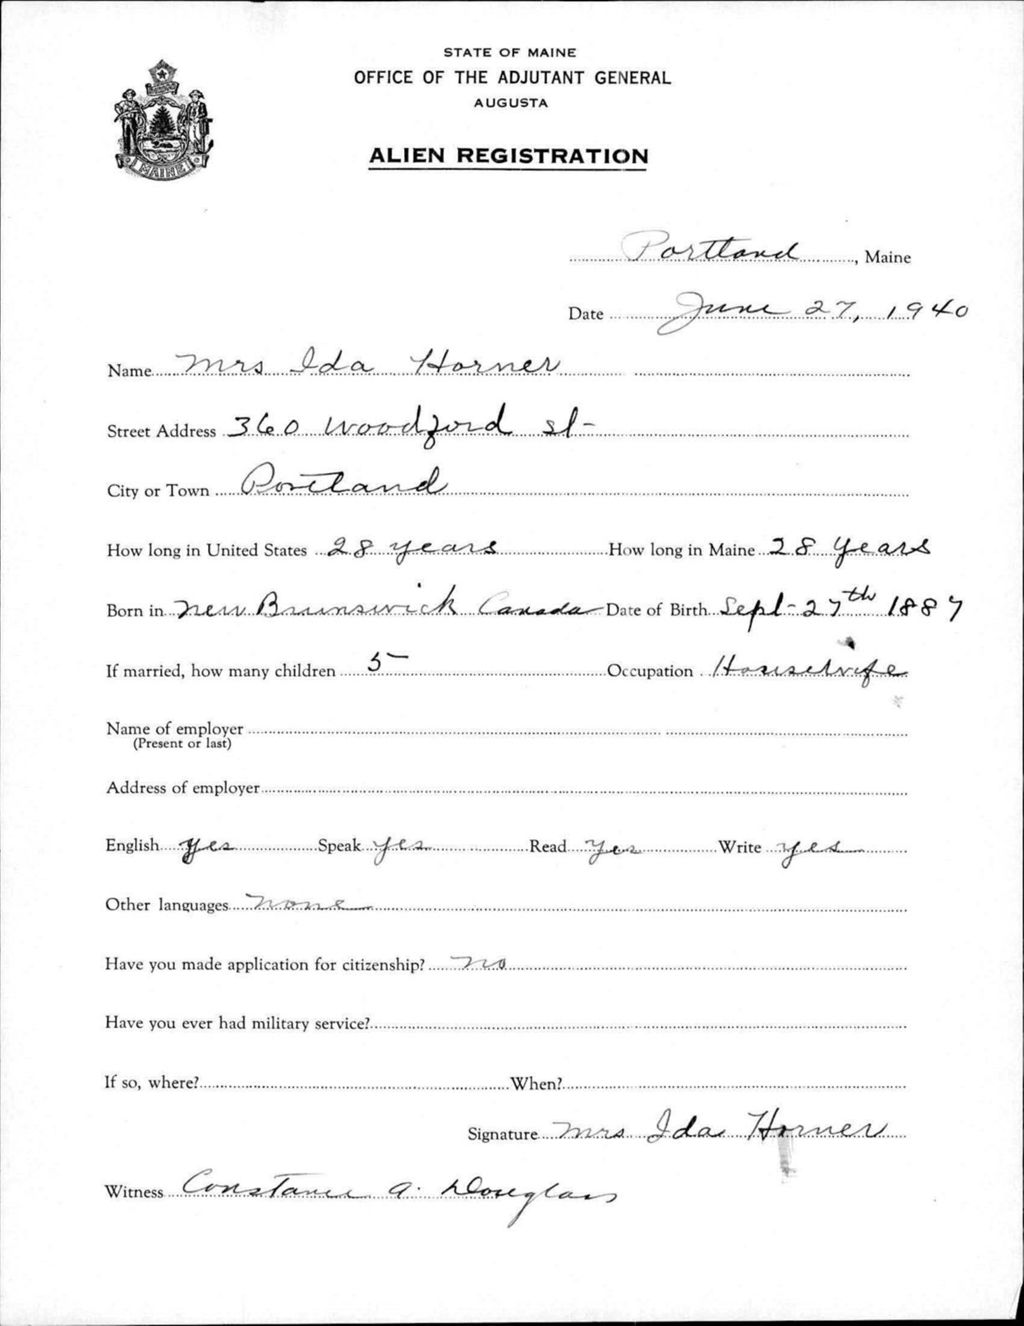 STATE OF MAINE
OFFICE OF THE ADJUTANT GENERAL
AUGUSTA
ALIEN REGISTRATION
MAINE
Portland, Maine
Date June 27, 1940
Name Mrs Ida Horner
Street Address 360 Woodford st-
City or Town Portland
How long in United States 28 years How long in Maine 28 years
Born in New Brunswick Canada Date of Birth Sept-27th 1887
If married, how many children 5 Occupation Housewife
Name of employer
(Present or last)
Address of employer
English yes Speak yes Read yes Write yes
Other languages none
Have you made application for citizenship? no
Have you ever had military service?
If so, where? When?
Signature Mrs Ida Horner
Witness Constance A. Douglass